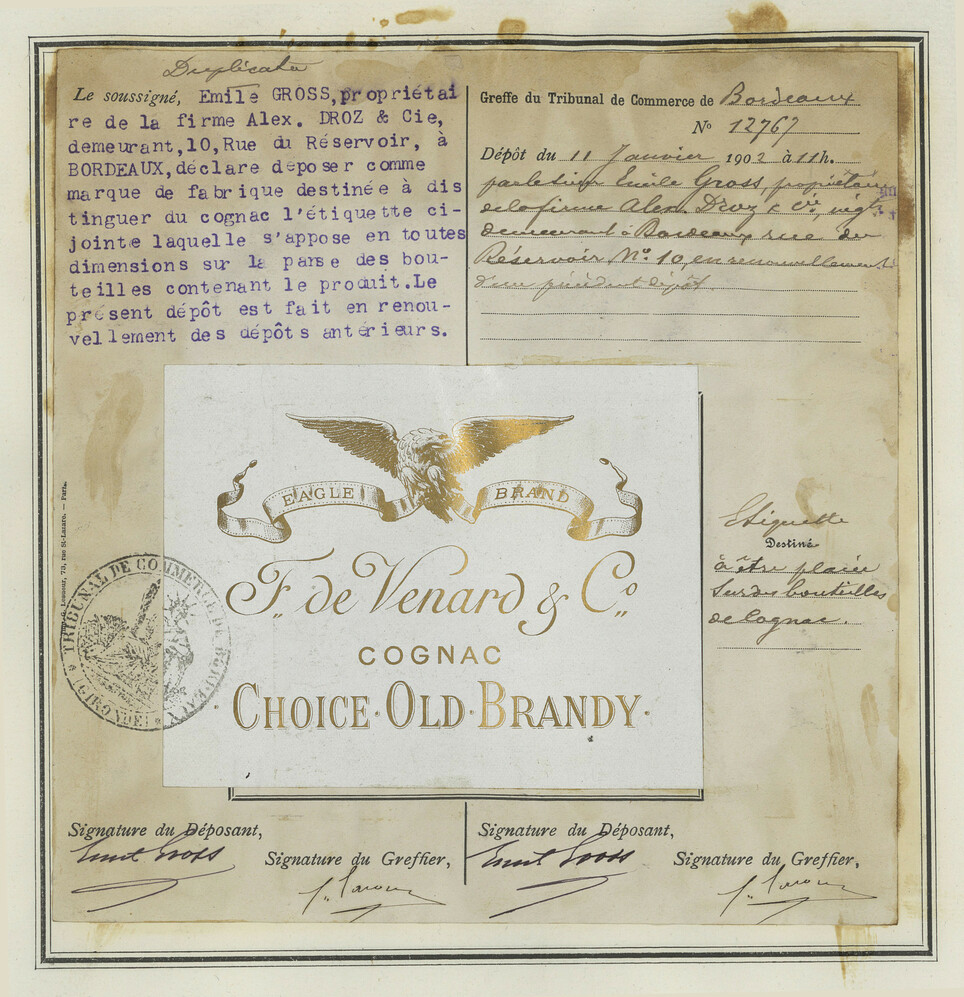 Duplicata
Le soussigné, Emile GROSS, propriétai
re de la firme Alex. DROZ & Cie,
demeurant, 10, Rue du Réservoir, à
BORDEAUX, déclare déposer comme
marque de fabrique destinée à dis
tinguer du cognac l'étiquette ci-
jointe laquelle s'appose en toutes
dimensions sur la panse des bou-
teilles contenant le produit. Le
présent dépôt est fait en renou-
vellement des dépôts antérieurs.
Greffe du Tribunal de Commerce de Bordeaux
No 12767
Dépôt du 11 Janvier 1902 à 11h.
par le sieur Emile Gross, propriétaire
de la firme Alex. Droz & Cie,
demeurant à Bordeaux rue du
Réservoir No. 10, en renouvellement
d'un précédent dépôt
EAGLE BRAND
F. de Venard & Co.
COGNAC
CHOICE · OLD · BRANDY ·
Etiquette
Destiné
à être placée
sur des bouteilles
de Cognac.
rue St-Lazare. — Paris.
TRIBUNAL DE COMMERCE DE BORDEAUX
(GIRONDE)
Signature du Déposant,
Emile Gross
Signature du Greffier,
Signature du Déposant,
Emile Gross
Signature du Greffier,